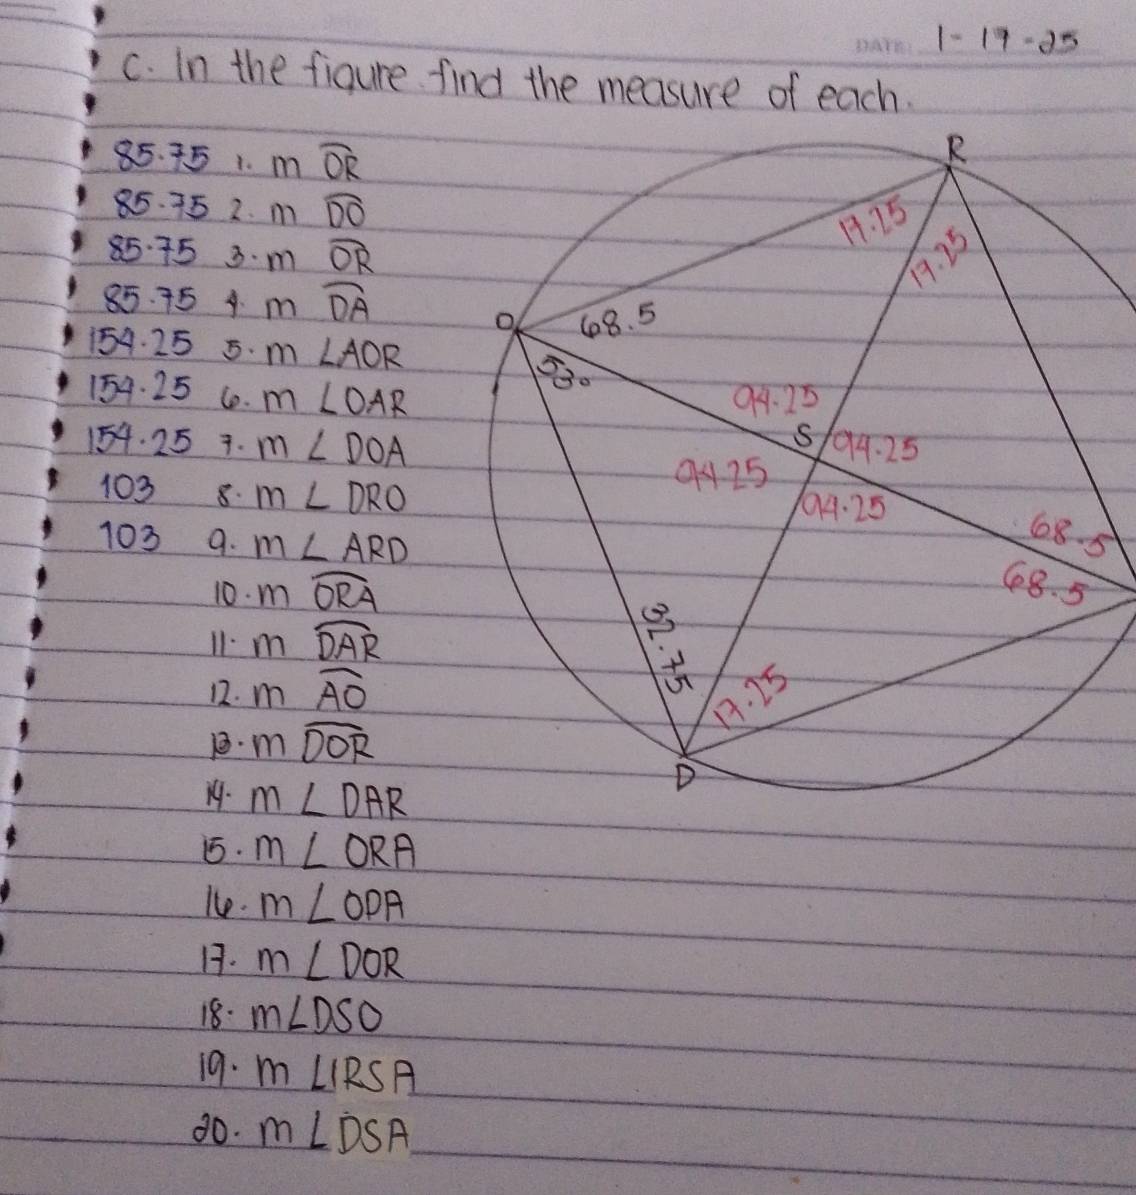 DATE: 1-17-25
C. In the figure. find the measure of each.
85.75 1. m OR
85.75 2. m DO
85.75 3. m OR
85.75 4. m DA
154.25 5. m ∠AOR
154.25 6. m ∠OAR
154.25 7. m ∠DOA
103 8. m ∠DRO
103 9. m ∠ARD
10. m ORA
11. m DAR
12. m AO
13. m DOR
14. m ∠DAR
15. m ∠ORA
16. m ∠ODA
17. m ∠DOR
18. m∠DSO
19. m ∠RSA
20. m ∠DSA
R
17.25
17.25
O
68.5
53°
94.25
S 94.25
94.25
94.25
68.5
68.5
32.75
17.25
D